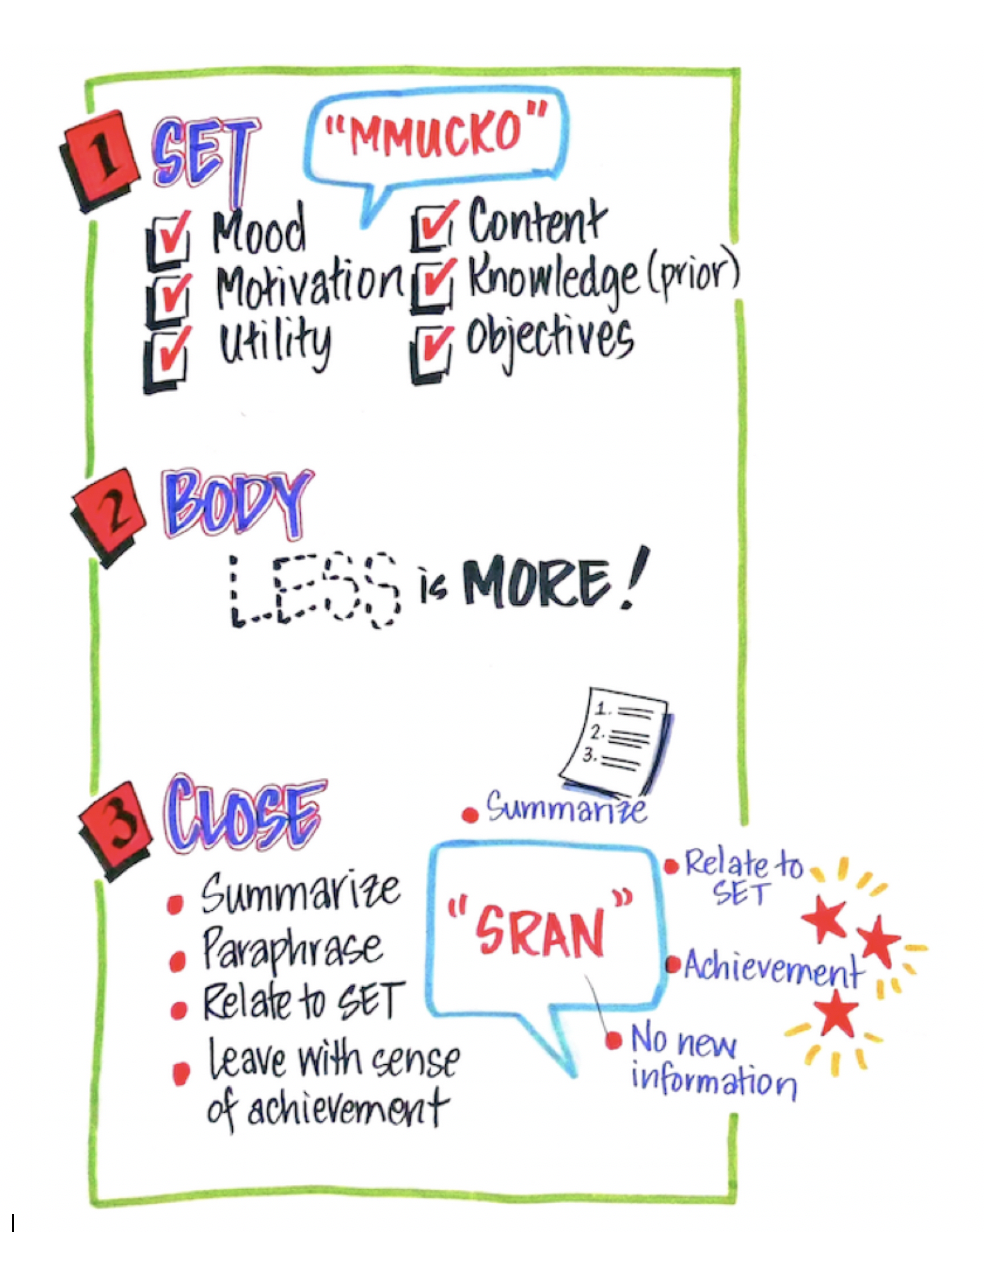 1 SET
"MMUCKO"
Mood
Motivation
Utility
Content
Knowledge (prior)
Objectives
2 BODY
LESS is MORE!
3 CLOSE
Summarize
Paraphrase
Relate to SET
Leave with sense
of achievement
1.
2.
3.
Summarize
"SRAN"
Relate to
SET
Achievement
No new
information